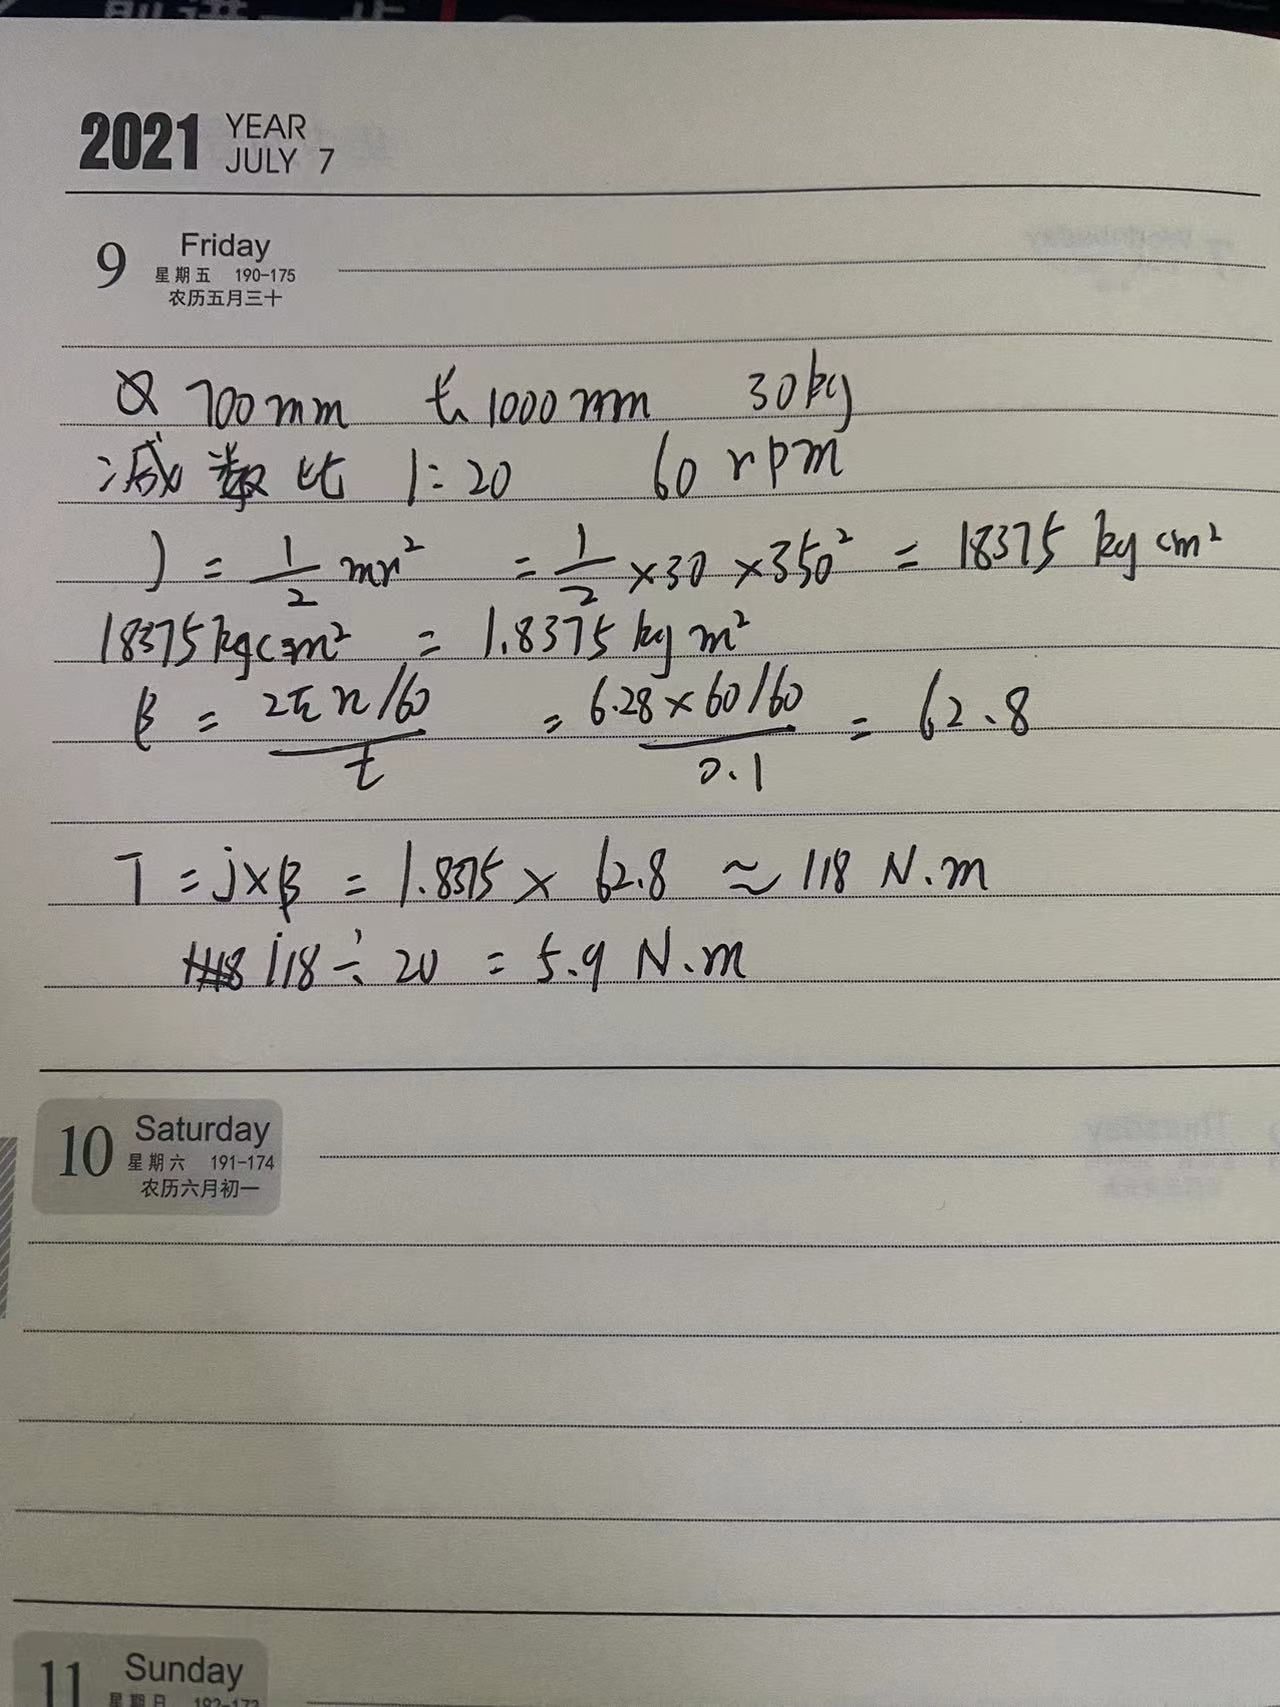 2021 YEAR
JULY 7
9 Friday
星期五 190-175
农历五月三十
Ø 700mm 长 1000mm 30kg
减数比 1:20 60 rpm
J = 1/2 mr² = 1/2 ×30 ×350² = 18375 kg cm²
18375 kgcm² = 1.8375 kg m²
β = 2π n/60 / t = 6.28 × 60/60 / 0.1 = 62.8
T = j×β = 1.8375 × 62.8 ≈ 118 N.m
118 ÷ 20 = 5.9 N.m
10 Saturday
星期六 191-174
农历六月初一
11 Sunday
星期日 192-173